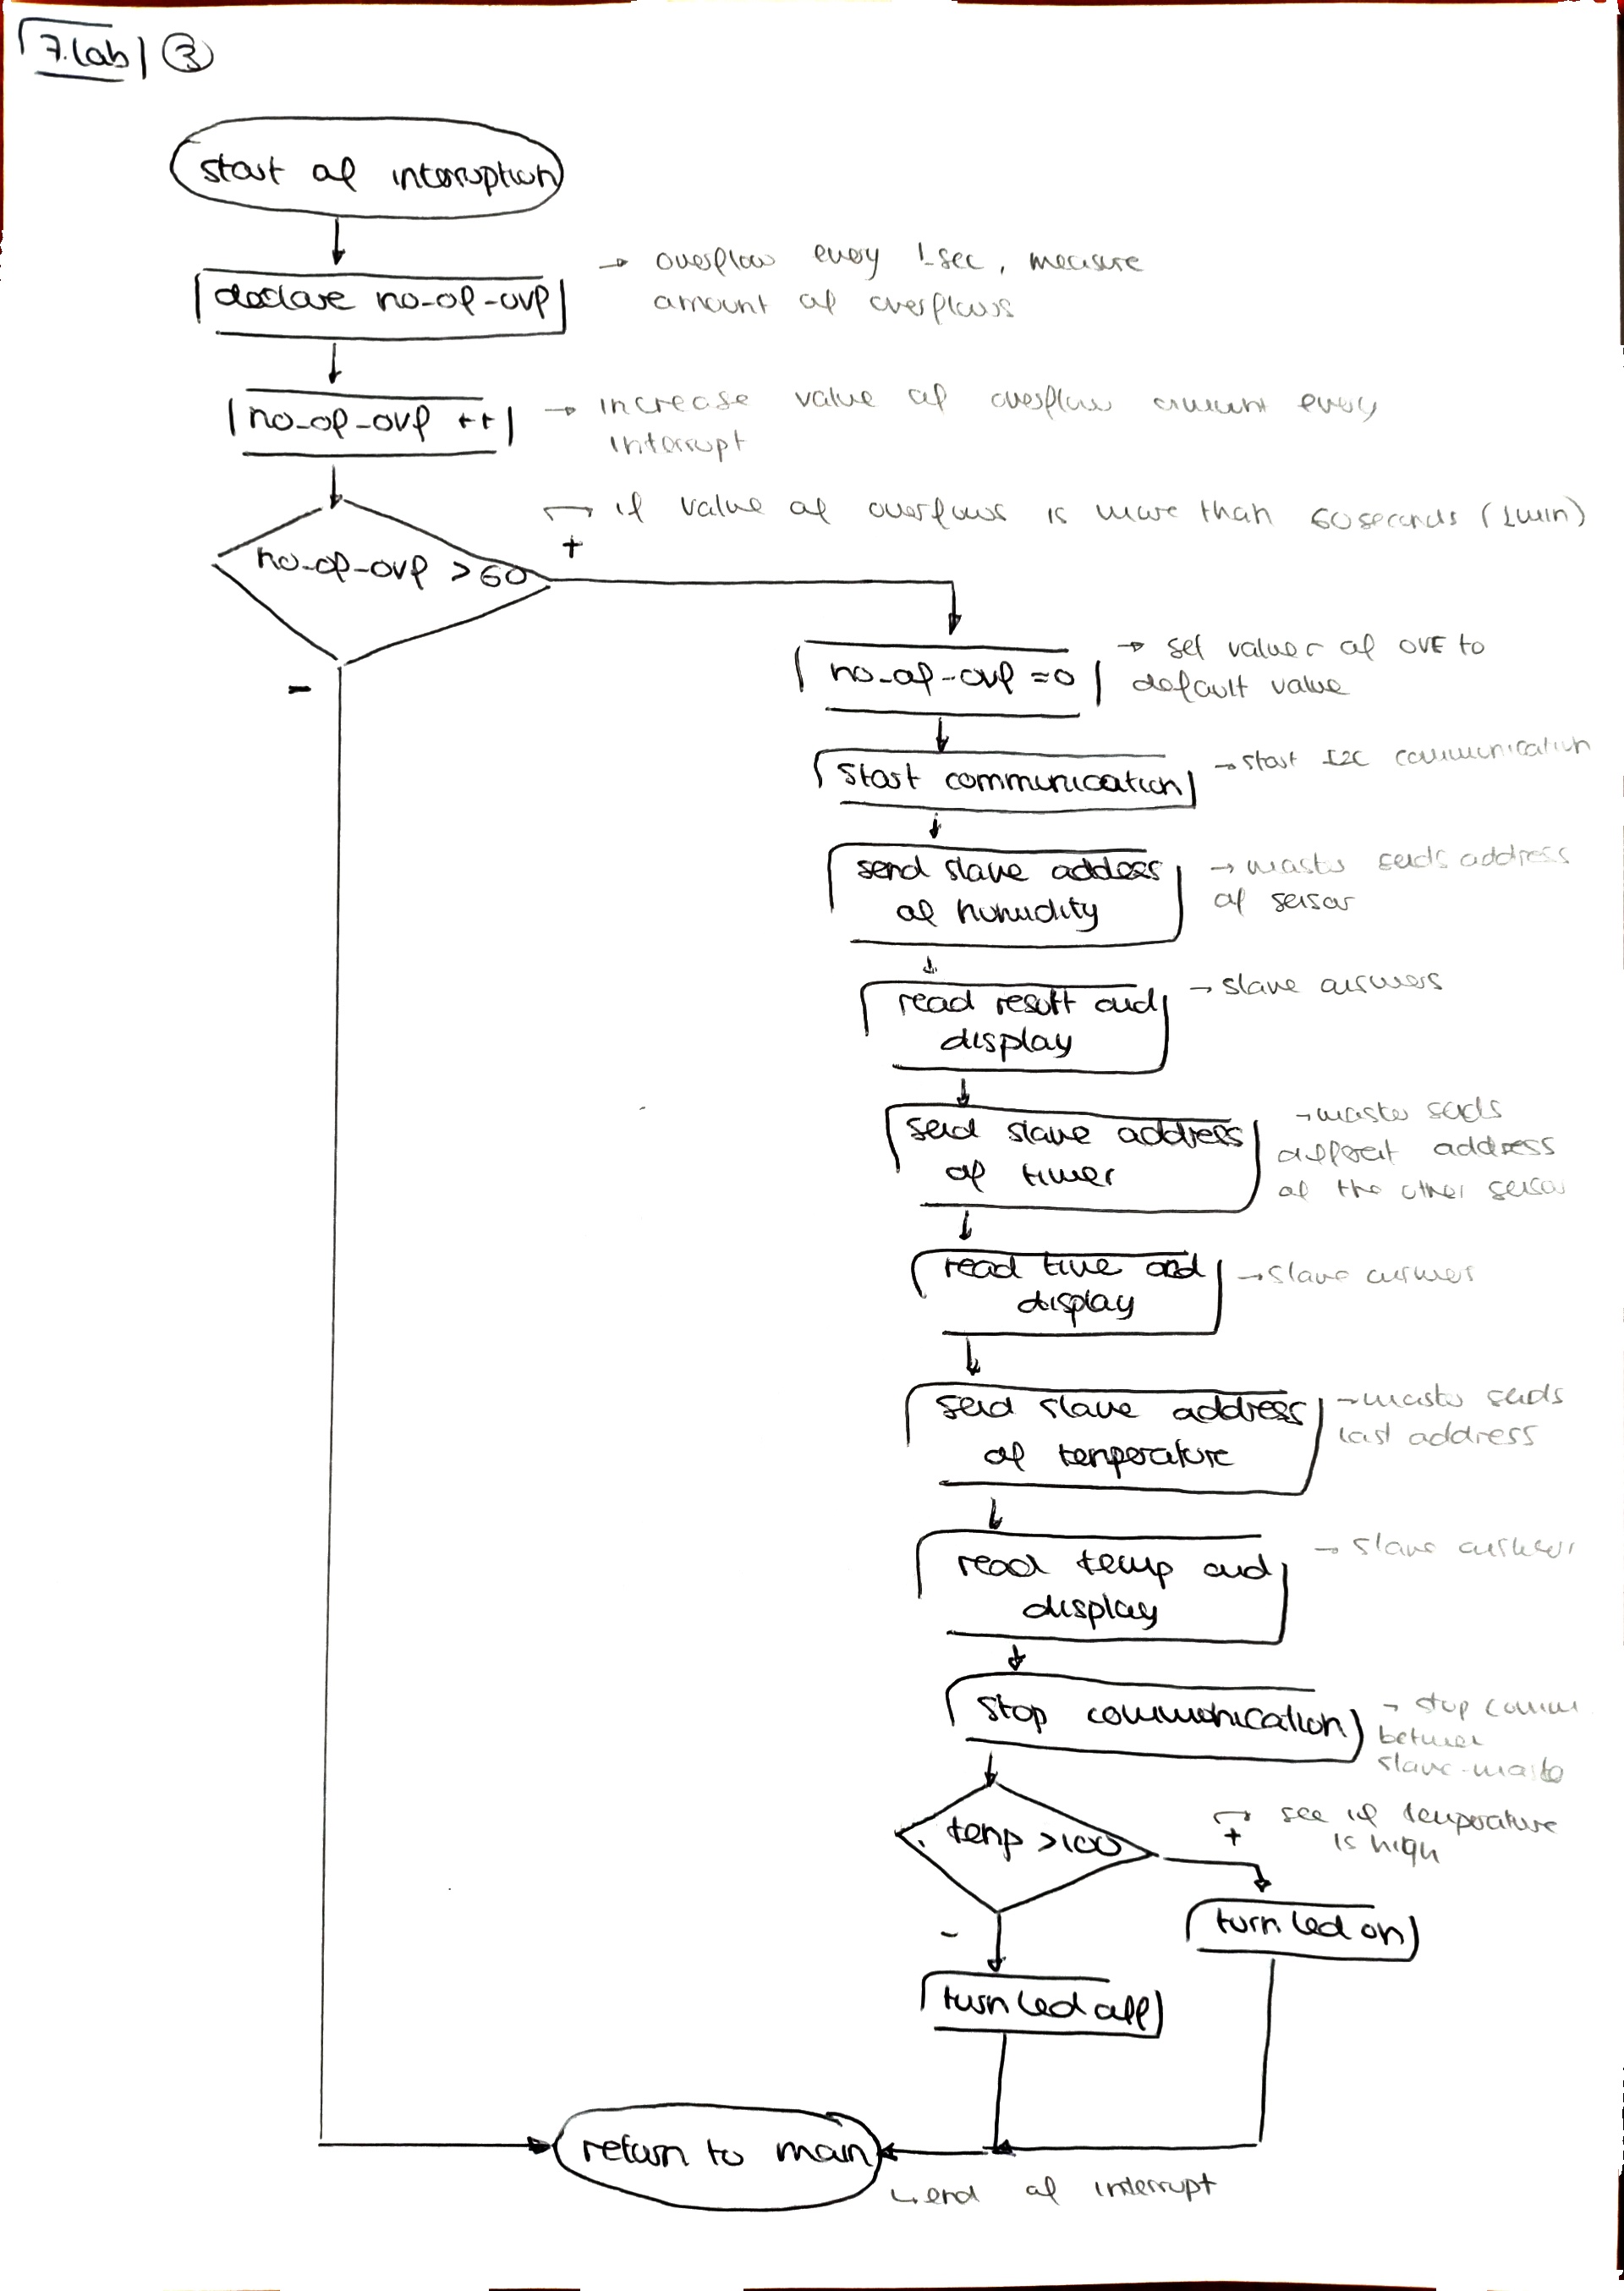 7.lab | 3
start of interruption
declare no_of_ovf
→ overflow every 1sec, measure
amount of overflows
no_of_ovf ++
→ increase value of overflow amount every
interrupt
no_of_ovf > 60
→ if value of overflows is more than 60 seconds (1min)
+
-
no_of_ovf = 0
→ set values of OVF to
default value
start communication
→ start I2C communication
send slave address
of humidity
→ master sends address
of sensor
read result and
display
→ slave answers
send slave address
of timer
→ master sends
different address
of the other sensor
read time and
display
→ slave answer
send slave address
of temperature
→ master sends
last address
read temp and
display
→ slave answer
stop communication
→ stop comm
between
slave-master
temp > 100
+
→ see if temperature
is high
-
turn led on
turn led off
return to main
↳ end of interrupt